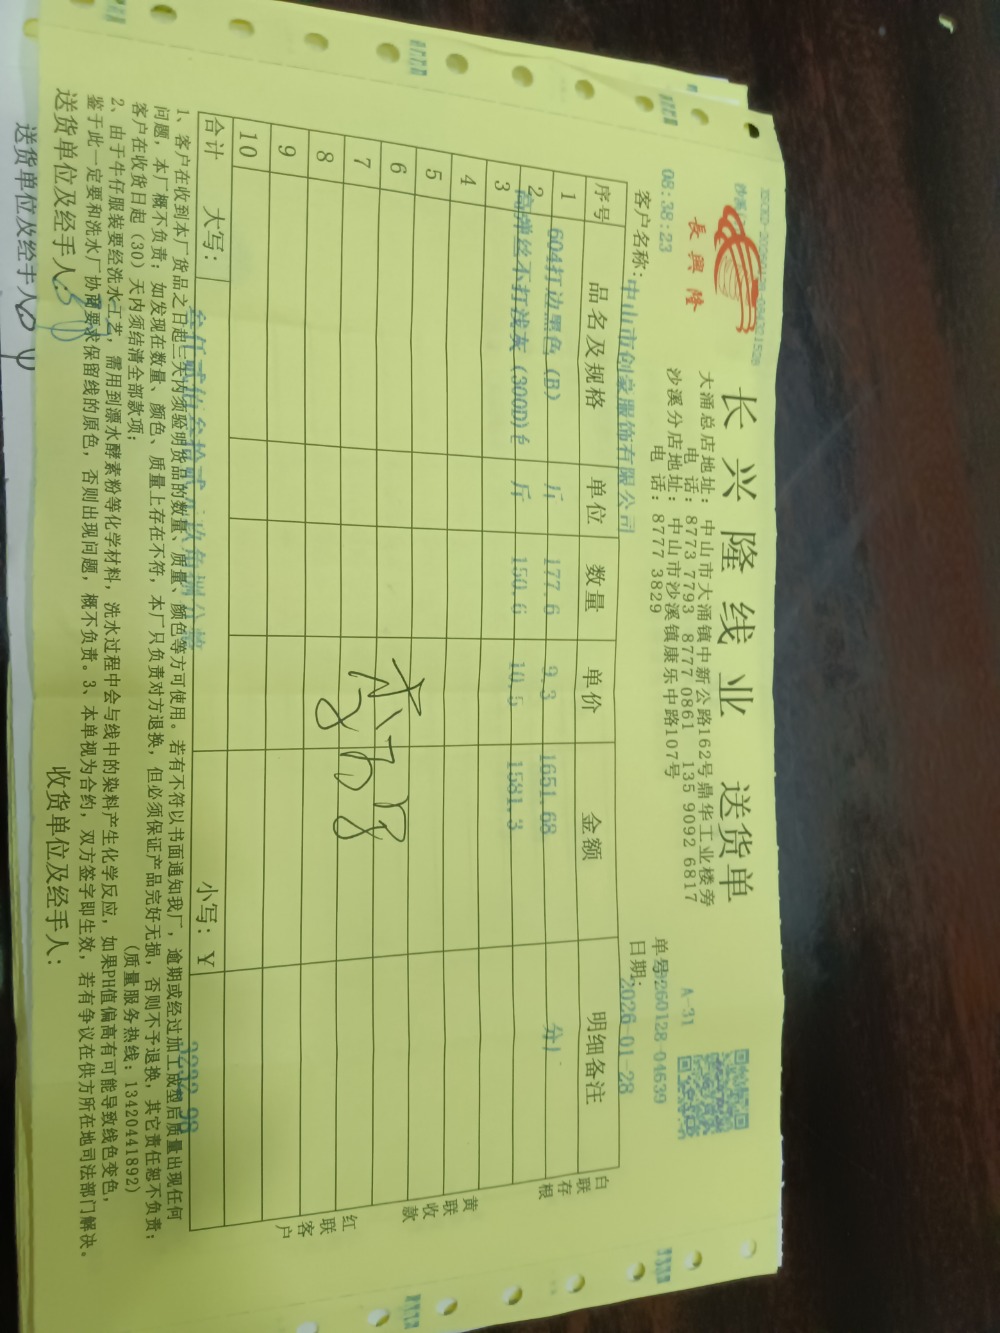 長興隆
长兴隆线业 送货单
大涌总店地址：中山市大涌镇中新公路162号鼎华工业楼旁
电 话：8773 7793 8777 0861 135 9092 6817
沙溪分店地址：中山市沙溪镇康乐中路107号
电 话：8777 3829
A-31
08:38:23
单号 260128-04639
客户名称：中山市创豪服饰有限公司
日期：2026-01-28
序号 品名及规格 单位 数量 单价 金额 明细备注
1 604打边黑色（B） 斤 177.6 9.3 1651.68
2 高弹丝不打浅灰（300D） 斤 150.6 10.5 1581.3
3
4
5
6
7
8
9
10
合计 大写：叁仟贰佰叁拾贰元玖角捌分 小写：￥ 3232.98
白联存根
黄联收款
红联客户
1、客户在收到本厂货品之日起三天内须验明货品的数量、质量、颜色等方可使用。若有不符以书面通知我厂，逾期或经过加工成型后质量出现任何
问题，本厂概不负责；如发现在数量、颜色、质量上存在不符，本厂只负责对方退换，但必须保证产品完好无损，否则不予退换，其它责任恕不负责；
客户在收货日起（30）天内须结清全部款项； （质量服务热线：13420441892）
2、由于牛仔服装要经洗水工艺，需用到漂水酵素粉等化学材料，洗水过程中会与线中的染料产生化学反应，如果PH值偏高有可能导致线色变色，
鉴于此一定要和洗水厂协商要求保留线的原色，否则出现问题，概不负责。3、本单视为合约，双方签字即生效，若有争议在供方所在地司法部门解决。
送货单位及经手人： 收货单位及经手人：
送货单位及经手人